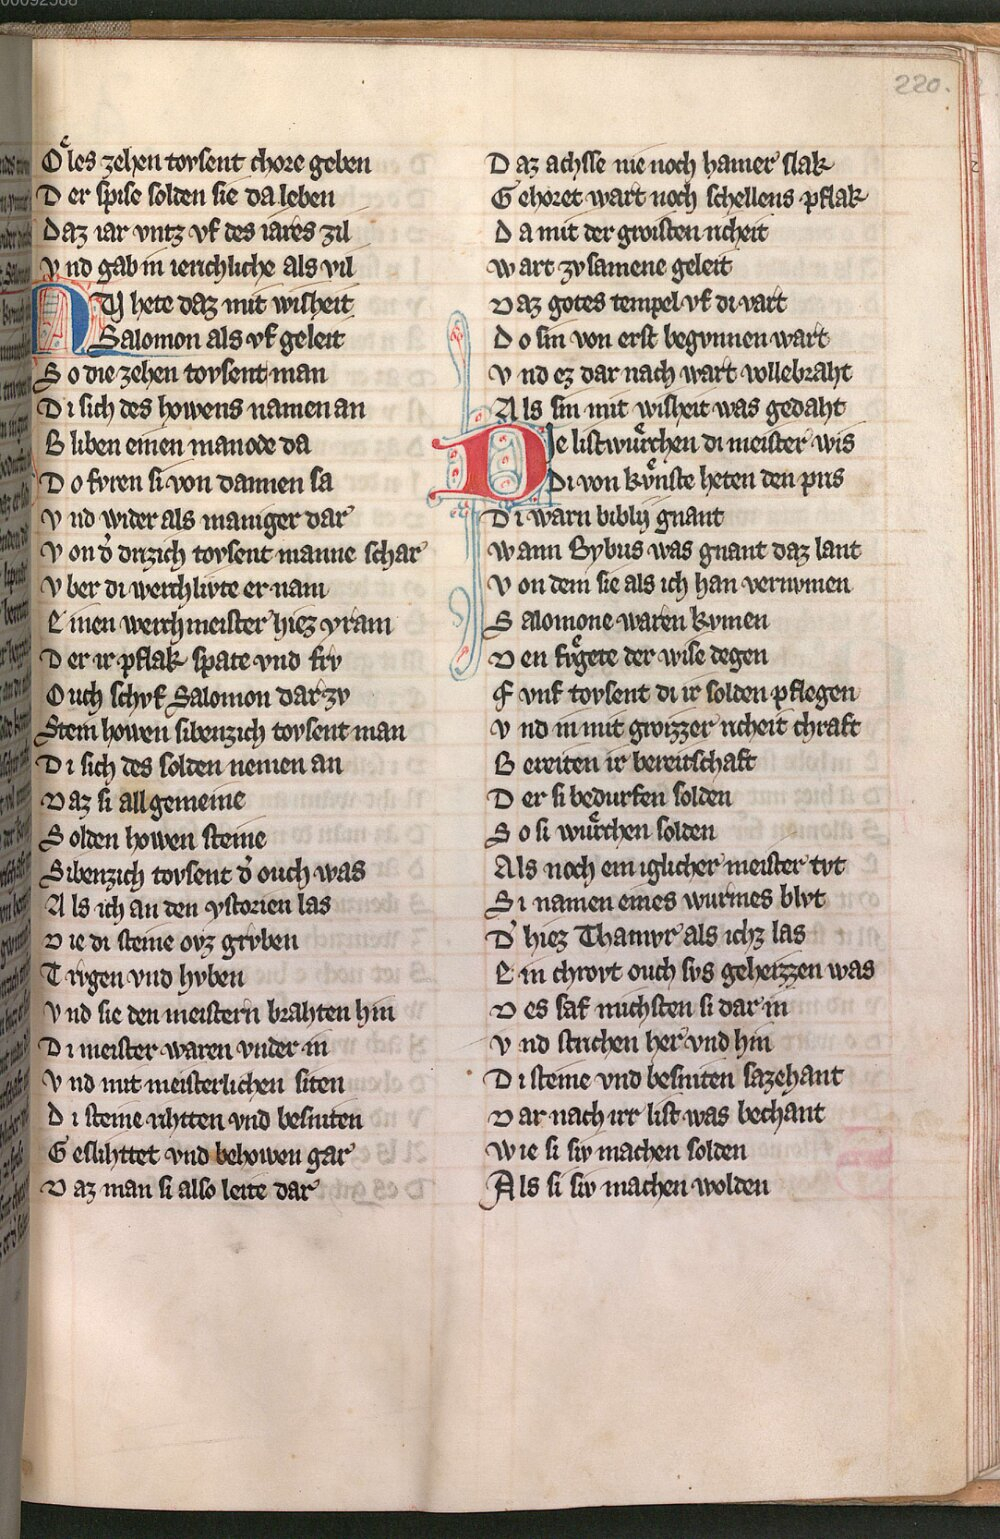 00092588
220.
Oͤles zehen tovsent chore geben
Der spise solden sie da leben
Daz iar vntz vf des iares zil
Vnd gab in ierichliche als vil
NV hete daz mit wisheit
Salomon als vf geleit
So die zehen tovsent man
Di sich des howens namen an
Bliben einen manode da
Do fvren si von dannen sa
Vnd wider als maniger dar
Von d̓ drizich tovsent manne schar
Vber di werchlivte er nam
Einen werchmeister hiez yram
Der ir pflak spate vnd frv
Ouch schvf Salomon dar zv
Stein howen sibenzich tovsent man
Di sich des solden nemen an
Daz si all gemeine
Solden howen steine
Sibenzich tovsent d̓ ouch was
Als ich an den ystorien las
Die di steine ovz grvben
Trvgen vnd hvben
Vnd sie den meistern brahten hin
Di meister waren vnder in
Vnd mit meisterlichen siten
Di steine rihtten vnd besniten
Geslihttet vnd behowen gar
Daz man si also leite dar
Daz achsse nie noch hamer slak
Gehoret wart noch schellens pflak
Da mit der groisten richeit
Wart zvsamene geleit
Daz gotes tempel vf di vart
Do sin von erst begvnnen wart
Vnd ez dar nach wart vollebraht
Als sin mit wisheit was gedaht
Die listwuͤrchen di meister wis
Di von kvͤnste heten den pris
Di warn biblij gnant
Wann Bybus was gnant daz lant
Von dem sie als ich han vernvmen
Salomone waren kvmen
Den fvͤgete der wise degen
Fvnf tovsent di ir solden pflegen
Vnd in mit groizzer richeit chraft
Bereiten ir bereitschaft
Der si bedurfen solden
So si wuͤrchen solden
Als noch ein iglicher meister tvt
Si namen eines wurmes blvt
D̓ hiez Thamvr als ichz las
Ein chrovt ouch svs geheizzen was
Des saf muchsten si dar in
Vnd strichen her vnd hin
Di steine vnd besniten sazehant
Dar nach irr list was bechant
Wie si siv machen solden
Als si siv machen wolden